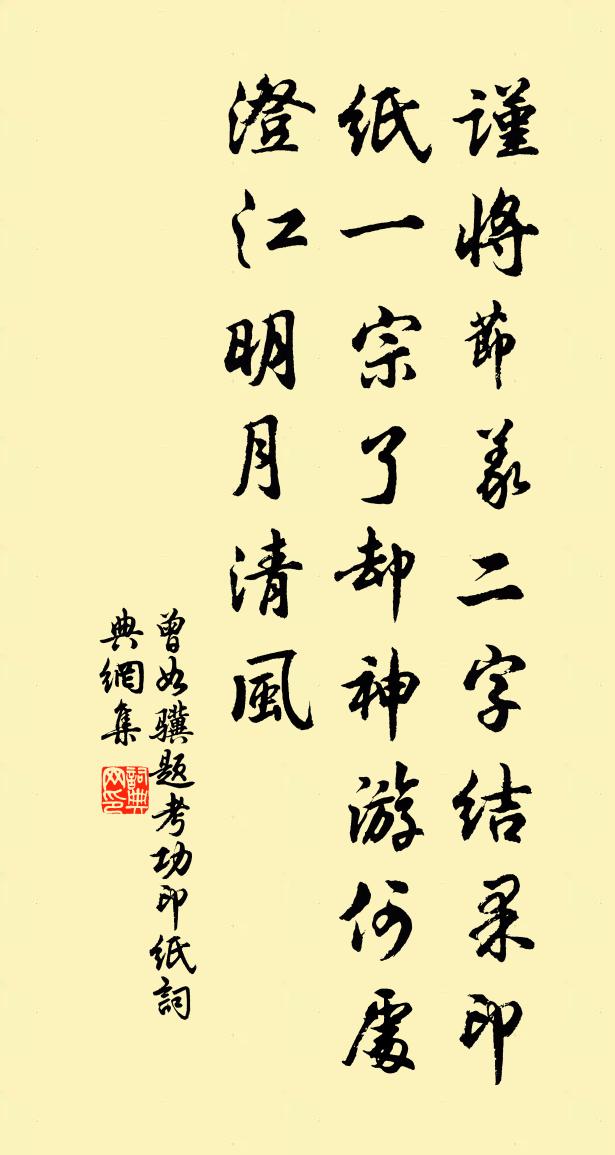 謹將節義二字結果印
紙一宗了却神游何處
澄江明月清風
曾如驥題考功印紙詞
典網集
詞典网印